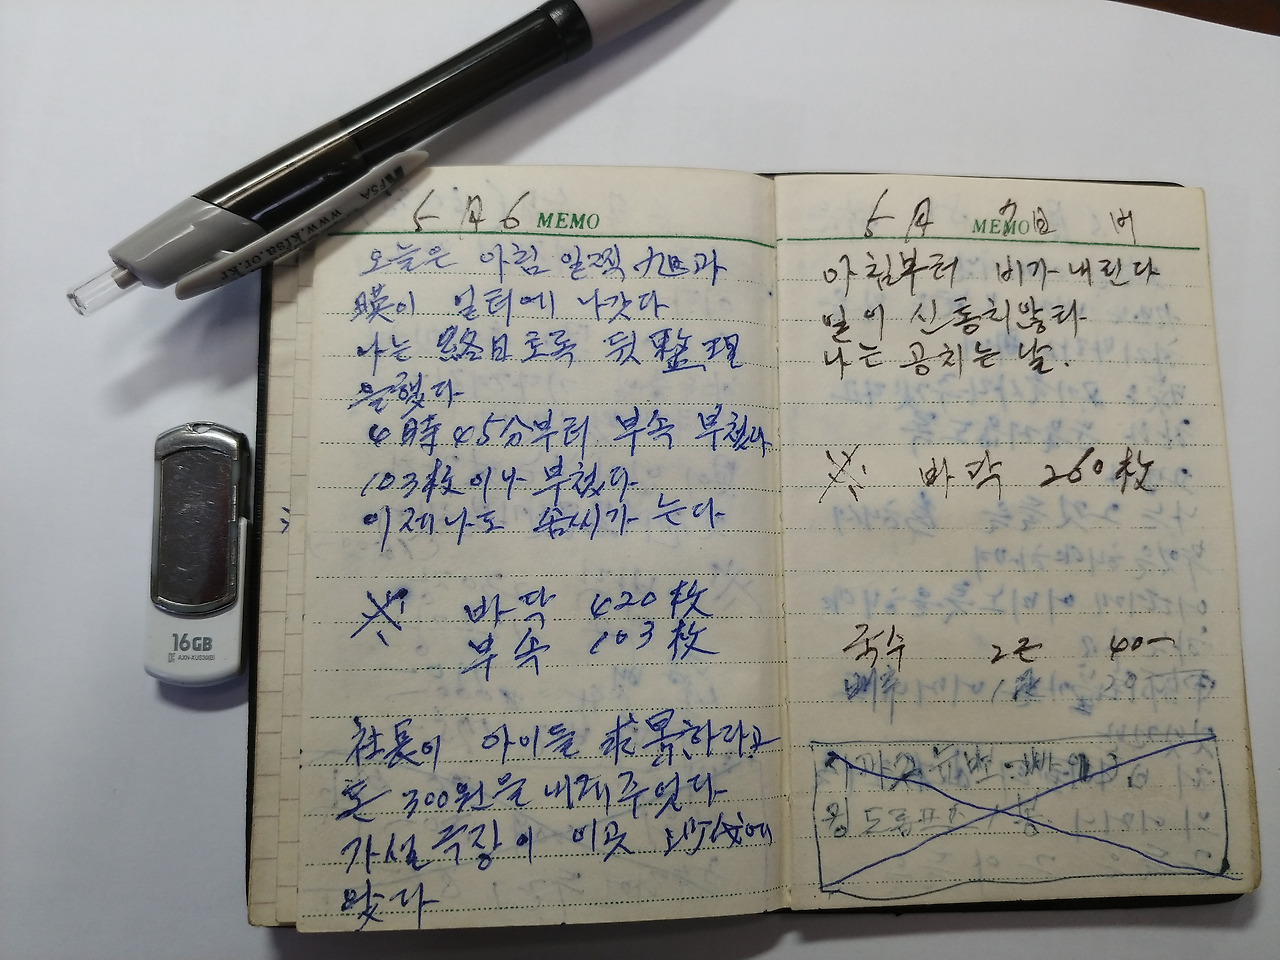 FSA
www.kfsa.or.kr
16GB
5月 6 MEMO
오늘은 아침 일찍 旭과
暎이 일터에 나갓다
나는 終日토록 뒷 整理
을 했다
4時 45分부터 부속 부쳤다
103枚이나 부쳤다
이제 나도 솜씨가 는다
※ 바닥 420枚
부속 103枚
社長이 아이들 求景하라고
돈 300원을 내게 주엇다
가설극장이 이곳
왔다
5月 MEMO 7日 비
아침부터 비가 내린다
일이 신통치 않다
나는 공치는 날.
※ 바닥 260枚
국수 2근 40-
배추